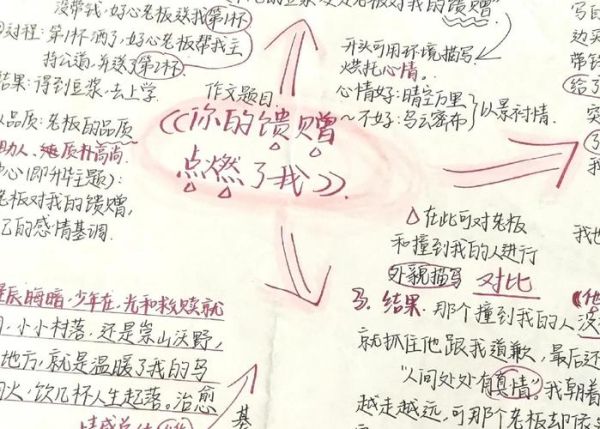 没带钱,好心老板送我第1杯
过程:第1杯洒了,好心老板帮我主
持公道,并送了第2杯.
结果:得到豆浆,去上学.
品质:老板的品质
助人,质朴高尚
中心(即升华主题):
老板对我的馈赠,
的感情基调.
老板对我的馈赠
开头可用环境描写
烘托心情。
心情好:晴空万里
~不好:乌云密布
以景衬情.
作文题目
《你的馈赠
点燃了我》
△在此可对老板
和撞到我的人进行
外貌描写 对比
3.结果.那个撞到我的人没
就抓住他跟我道歉,最后还
"人间处处有真情"。我朝着
越走越远,可那个老板却依
星辰晦暗,少年在,光和救赎就
小小村落.还是崇山沃野,
地方,就是温暖了我的
火,饮几杯人生起落。治愈
基
写的
边买
带钱
给了
突
了
我
我也